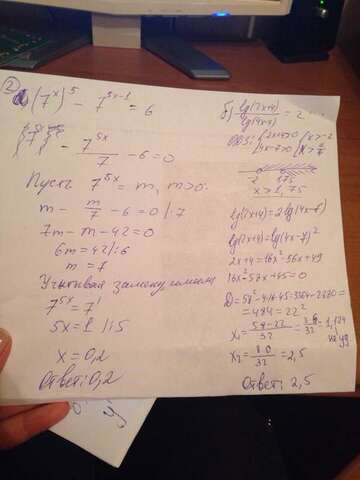 2
а) (7^x)^5 - 7^(5x-1) = 6
- 7^(5x)/7 - 6 = 0
Пусть 7^(5x) = m, m>0.
m - m/7 - 6 = 0 |·7
7m - m - 42 = 0
6m = 42 |:6
m = 7
Учитывая замену имеем
7^(5x) = 7^1
5x = 1 |:5
x = 0,2
Ответ: 0,2
б) lg(2x+4)/lg(4x-7) = 2
2x+4>0
4x-7>0
x>-2
x>7/4
-2
1,75
x>1,75
lg(2x+4)=2lg(4x-7)
lg(2x+4)=lg(4x-7)^2
2x+4=16x^2-56x+49
16x^2-58x+45=0
D=58^2-4·16·45=3364-2880=
=484=22^2
x1=(58-22)/32=36/32=1,124
не уд
x2=80/32=2,5
Ответ: 2,5